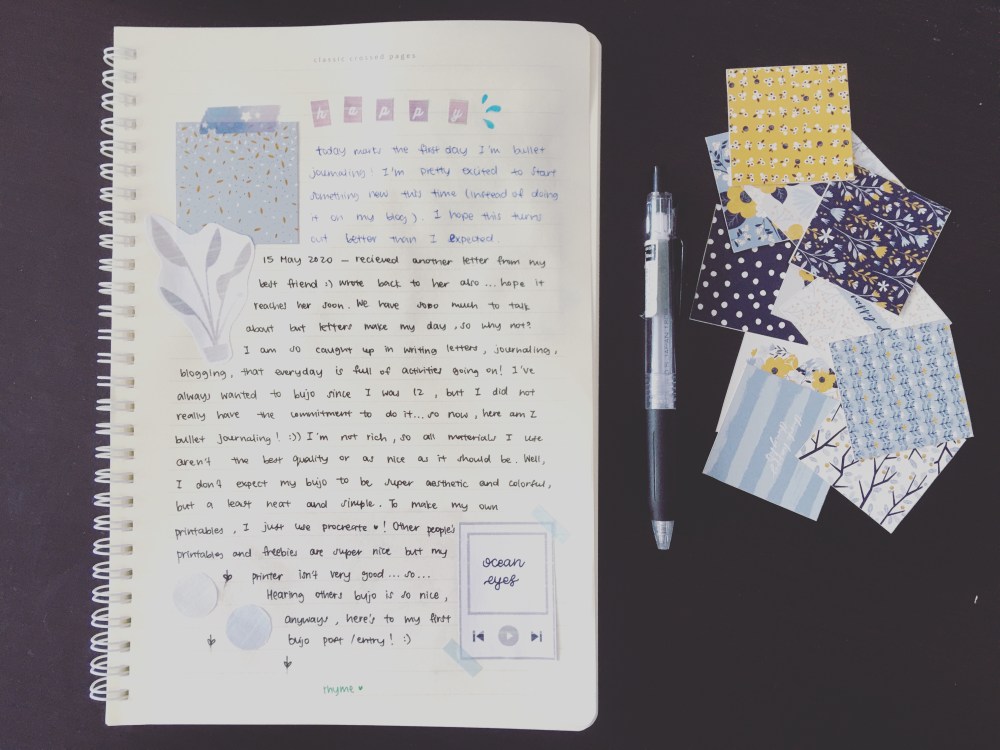 classic crossed pages
happy
today marks the first day I'm bullet
journaling! I'm pretty excited to start
something new this time (instead of doing
it on my blog). I hope this turns
out better than I expected.
15 May 2020 – recieved another letter from my
best friend :) wrote back to her also... hope it
reaches her soon. We have sooo much to talk
about but letters make my day, so why not?
I am so caught up in writing letters, journaling,
blogging, that everyday is full of activities going on! I've
always wanted to bujo since I was 12, but I did not
really have the commitment to do it... so now, here am I
bullet journaling! :)) I'm not rich, so all materials I use
aren't the best quality or as nice as it should be. Well,
I don't expect my bujo to be super aesthetic and colorful,
but a least neat and simple. To make my own
printables, I just use procreate ♥! Other people's
printables and freebies are super nice but my
printer isn't very good... so...
Hearing others bujo is so nice,
anyways, here's to my first
bujo post/entry! :)
ocean
eyes
rhyme ♥